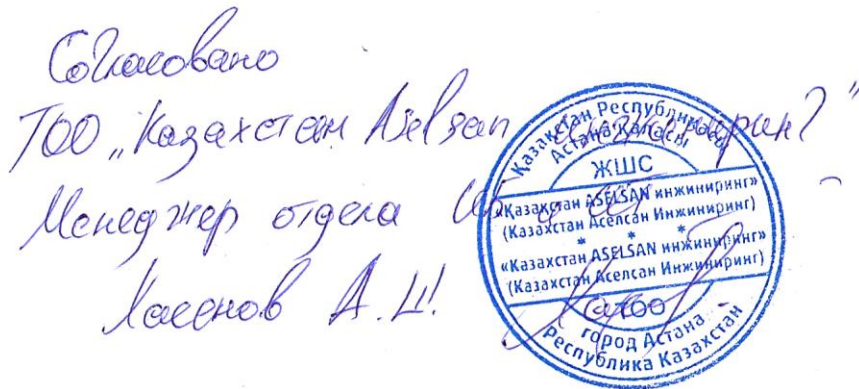 Согласовано
ТОО „Казахстан Aselsan инжиниринг"
Менеджер отдела
Хасенов А.Ш.
Қазақстан Республикасы
Астана қаласы
ЖШС
«Қазақстан ASELSAN инжиниринг»
(Казахстан Аселсан Инжиниринг)
* * *
«Казахстан ASELSAN инжиниринг»
(Казахстан Аселсан Инжиниринг)
ТОО
город Астана
Республика Казахстан